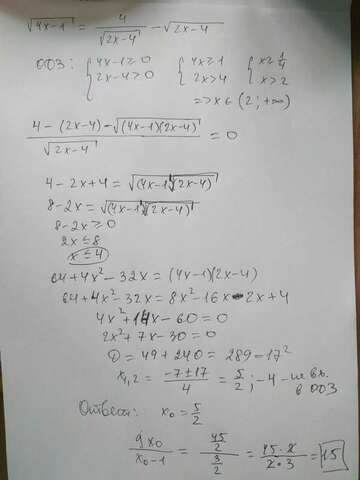 √(4x-1) = 4/√(2x-4) - √(2x-4)
ООЗ: { 4x-1≥0 { 4x≥1 { x≥1/4
2x-4>0 2x>4 x>2
=> x∈(2;+∞)
(4-(2x-4)-√((4x-1)(2x-4)))/√(2x-4) = 0
4-2x+4 = √((4x-1)(2x-4))
8-2x = √((4x-1)(2x-4))
8-2x≥0
2x≤8
x≤4
64+4x²-32x = (4x-1)(2x-4)
64+4x²-32x = 8x²-16x-2x+4
4x²+14x-60=0
2x²+7x-30=0
D = 49+240 = 289=17²
x₁,₂ = (-7±17)/4 = 5/2; -4 - не вх.
в ООЗ
Ответ: x₀ = 5/2
9x₀/(x₀-1) = (45/2)/(3/2) = (45·2)/(2·3) = 15